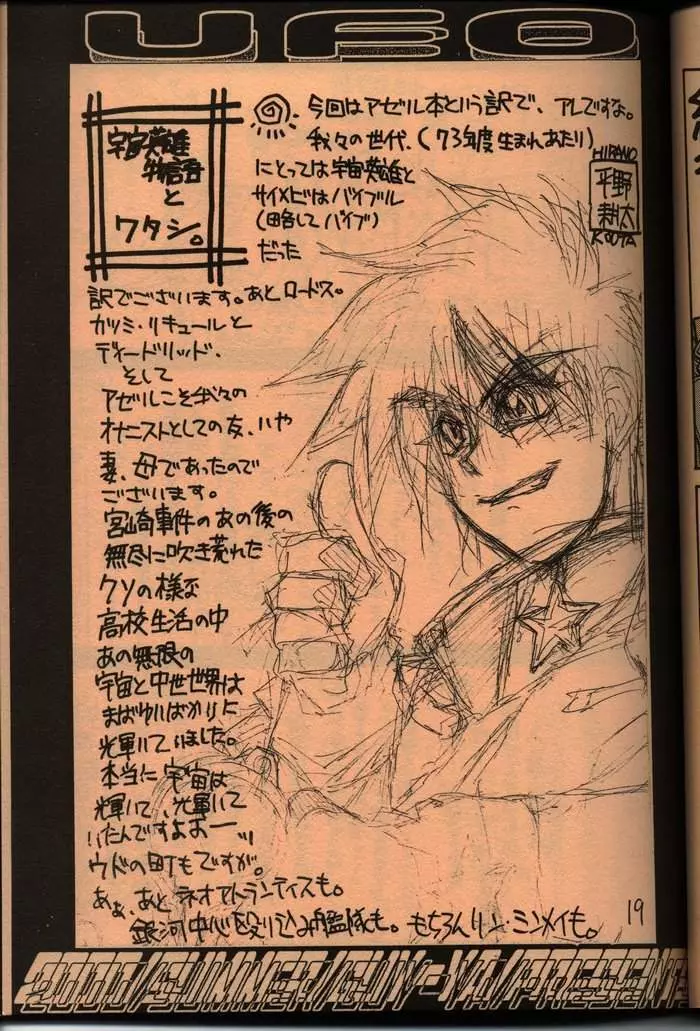 UFO
宇宙英雄
物語
と
ワタシ。
今回はアゼル本という訳で、アレですな。
我々の世代、(73年度生まれあたり)
にとっては宇宙英雄と
サイメビはバイブル
(略してバイブ)
だった
HIRANO
平野
耕太
KOUTA
訳でございます。あとロードス。
カツミ・リキュールと
ディードリッド、
そして
アゼルこそ我々の
オナニストとしての友、いや
妻、母であったので
ございます。
宮崎事件のあの後の
無尽に吹き荒れた
クソの様な
高校生活の中
あの無限の
宇宙と中世世界は
まばゆいばかりに
光輝いていました。
本当に宇宙は
輝いて、光輝いて
いたんですよおー
ウドの町もですが。
あぁ、あとネオアトランティスも。
銀河中心殴り込み艦隊も。もちろんリン・ミンメイも。
19
2000/SUMMER/GUY-YA/PRESENTS